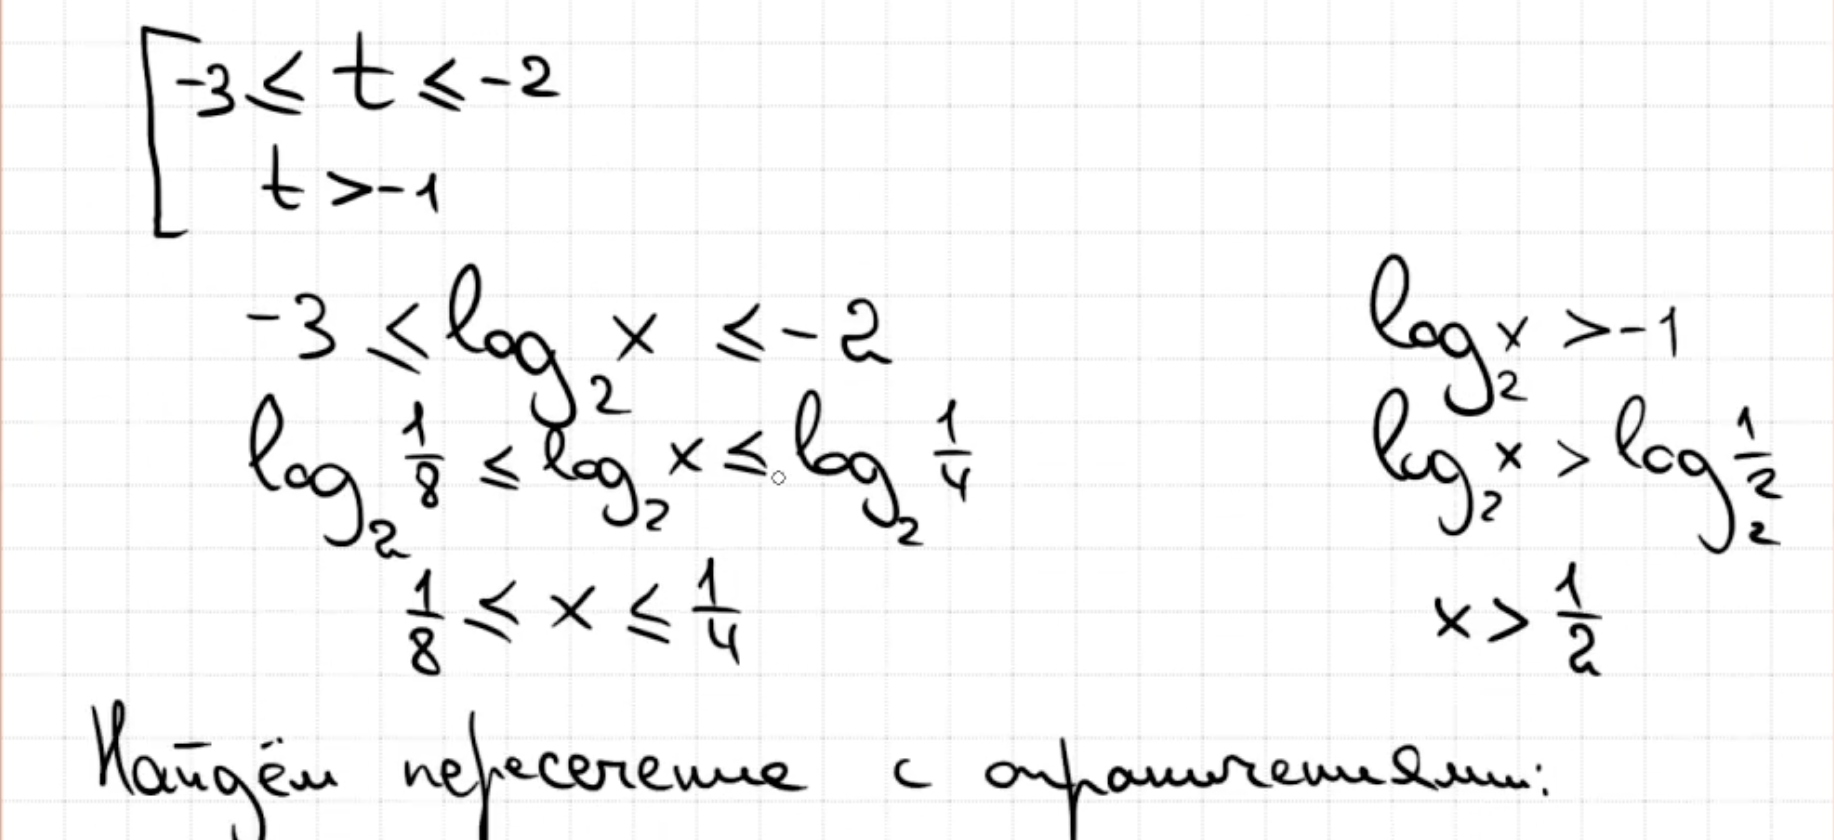 -3 ≤ t ≤ -2
t > -1
-3 ≤ log₂ x ≤ -2
log₂ x > -1
log₂ 1/8 ≤ log₂ x ≤ log₂ 1/4
log₂ x > log₂ 1/2
1/8 ≤ x ≤ 1/4
x > 1/2
Найдём пересечение с ограничениями: